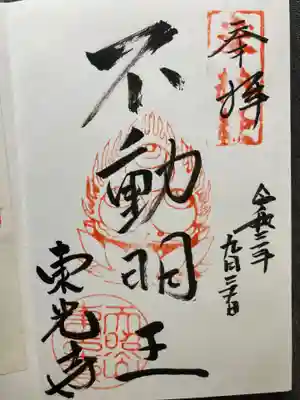 奉拝
令和二年
九月二十日
不動明王
東光寺